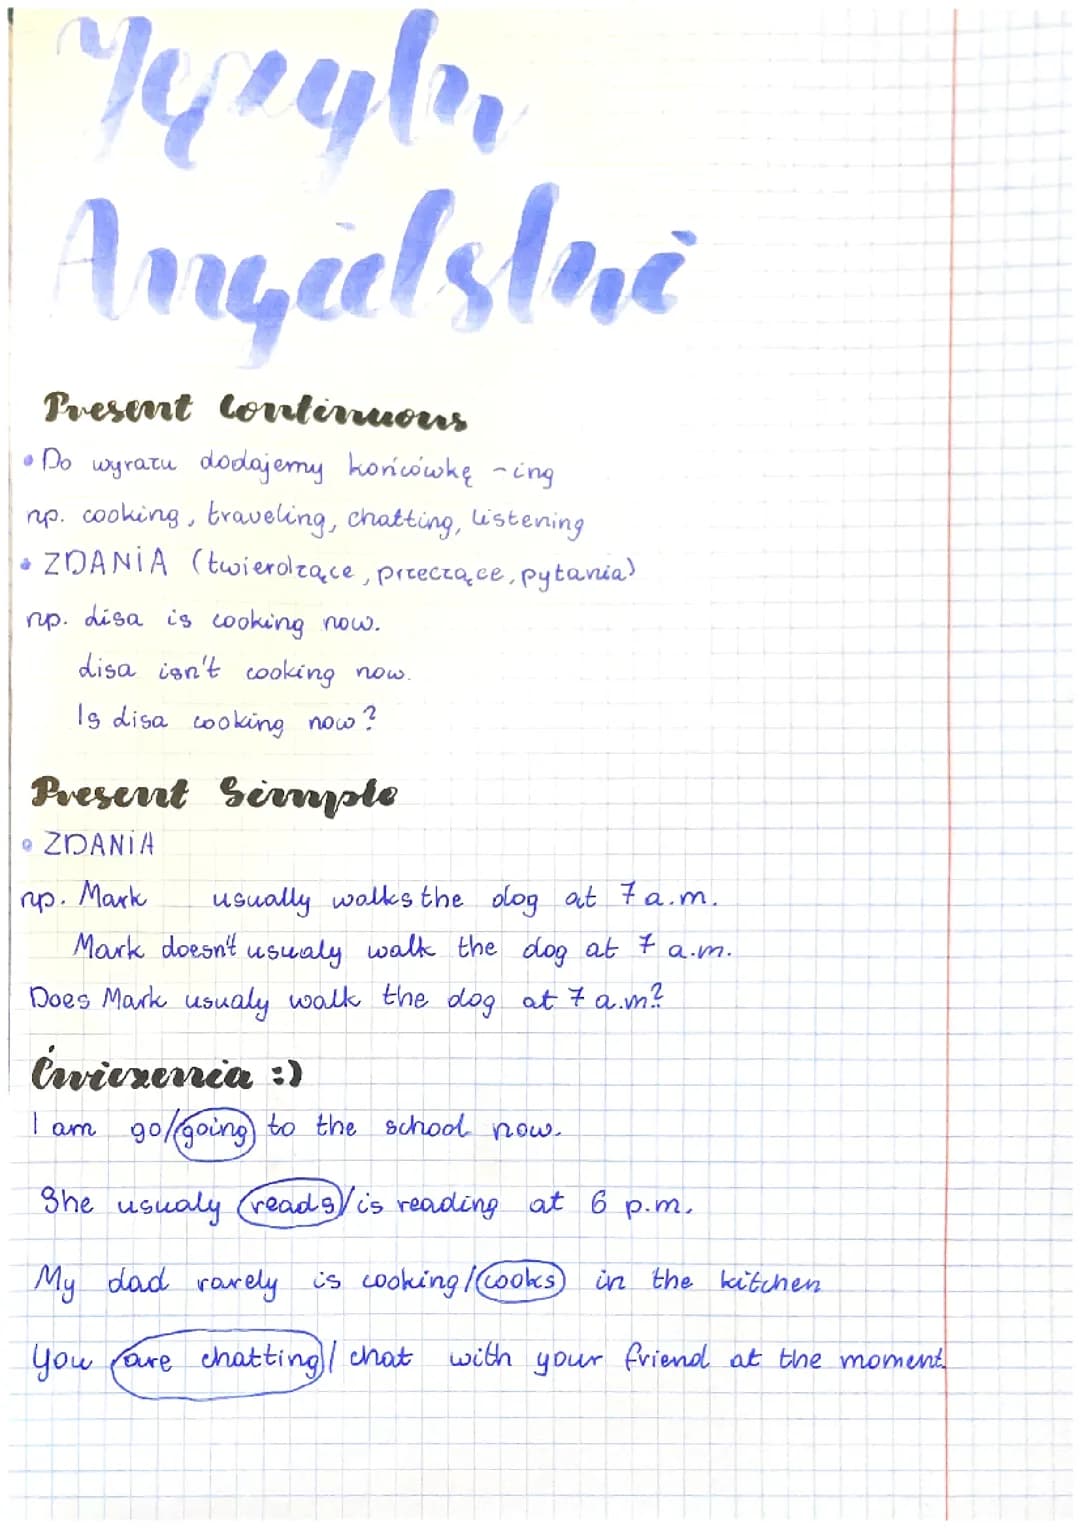 Język
Angielski
Present Continuous
• Do wyrazu dodajemy końcówkę -ing
np. cooking, traveling, chatting, listening
• ZDANIA (twierdzące, przeczące, pytania)
np. Lisa is cooking now.
Lisa isn't cooking now.
Is Lisa cooking now?
Present Simple
• ZDANIA
np. Mark usually walks the dog at 7 a.m.
Mark doesn't usualy walk the dog at 7 a.m.
Does Mark usualy walk the dog at 7 a.m?
Ćwiczenia :)
I am go/going to the school now.
She usualy reads/is reading at 6 p.m.
My dad rarely is cooking/cooks in the kitchen
You are chatting/chat with your friend at the moment.